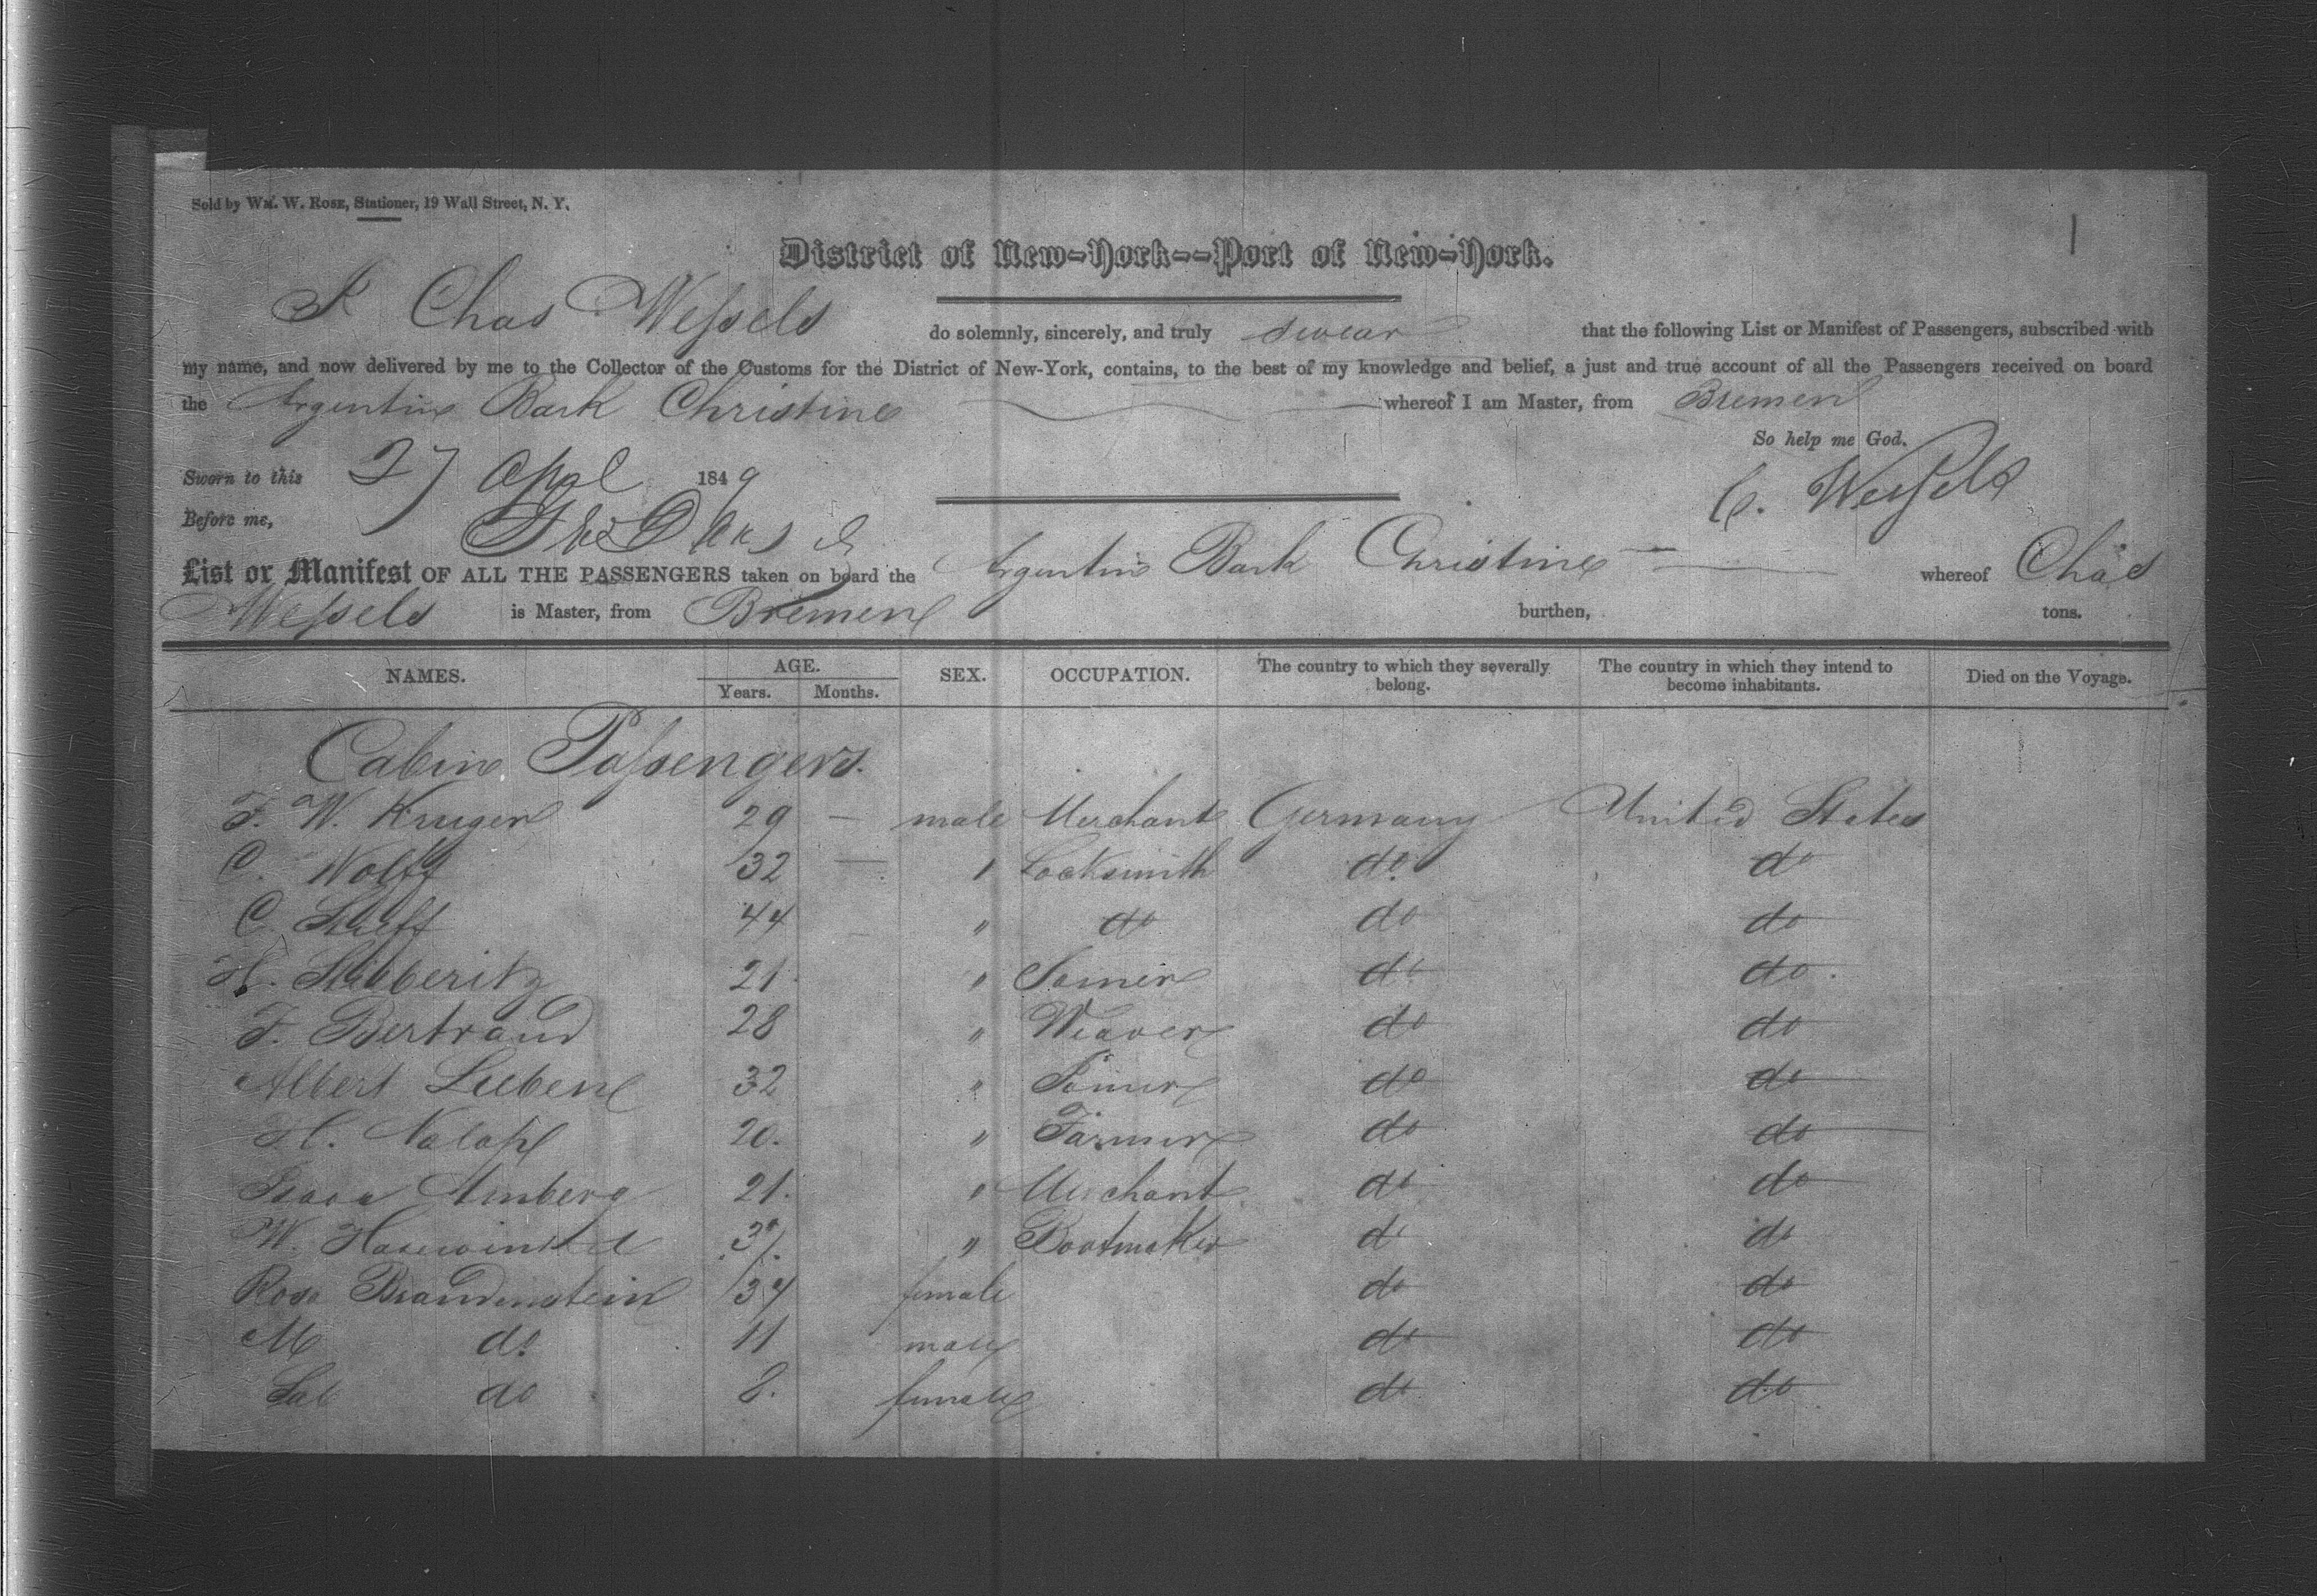 Sold by Wm. W. Rose, Stationer, 19 Wall Street, N. Y.
1
District of New-York--Port of New-York.
I Chas Wessels do solemnly, sincerely, and truly swear that the following List or Manifest of Passengers, subscribed with
my name, and now delivered by me to the Collector of the Customs for the District of New-York, contains, to the best of my knowledge and belief, a just and true account of all the Passengers received on board
the Argentine Bark Christine whereof I am Master, from Bremen
So help me God.
Sworn to this 27 April 1849
C. Wessels
Before me,
List or Manifest OF ALL THE PASSENGERS taken on board the Argentine Bark Christine whereof Chas
Wessels is Master, from Bremen burthen, tons.
NAMES. AGE. Years. Months. SEX. OCCUPATION. The country to which they severally belong. The country in which they intend to become inhabitants. Died on the Voyage.
Cabin Passengers.
F. W. Kruger 29 — male Merchant Germany United States
C. Wolff 32 — " Locksmith do do
C. 44 " do do do
H. 21 " Joiner do do
F. Bertrand 28 " Weaver do do
Albert Lieben 32 " Joiner do do
20. " Farmer do do
Isaac Amberg 21. " Merchant do do
W. Hasewinkel " Bootmaker do do
Rosa Brandenstein 34 female do do
M do 11 male do do
do 8. female do do